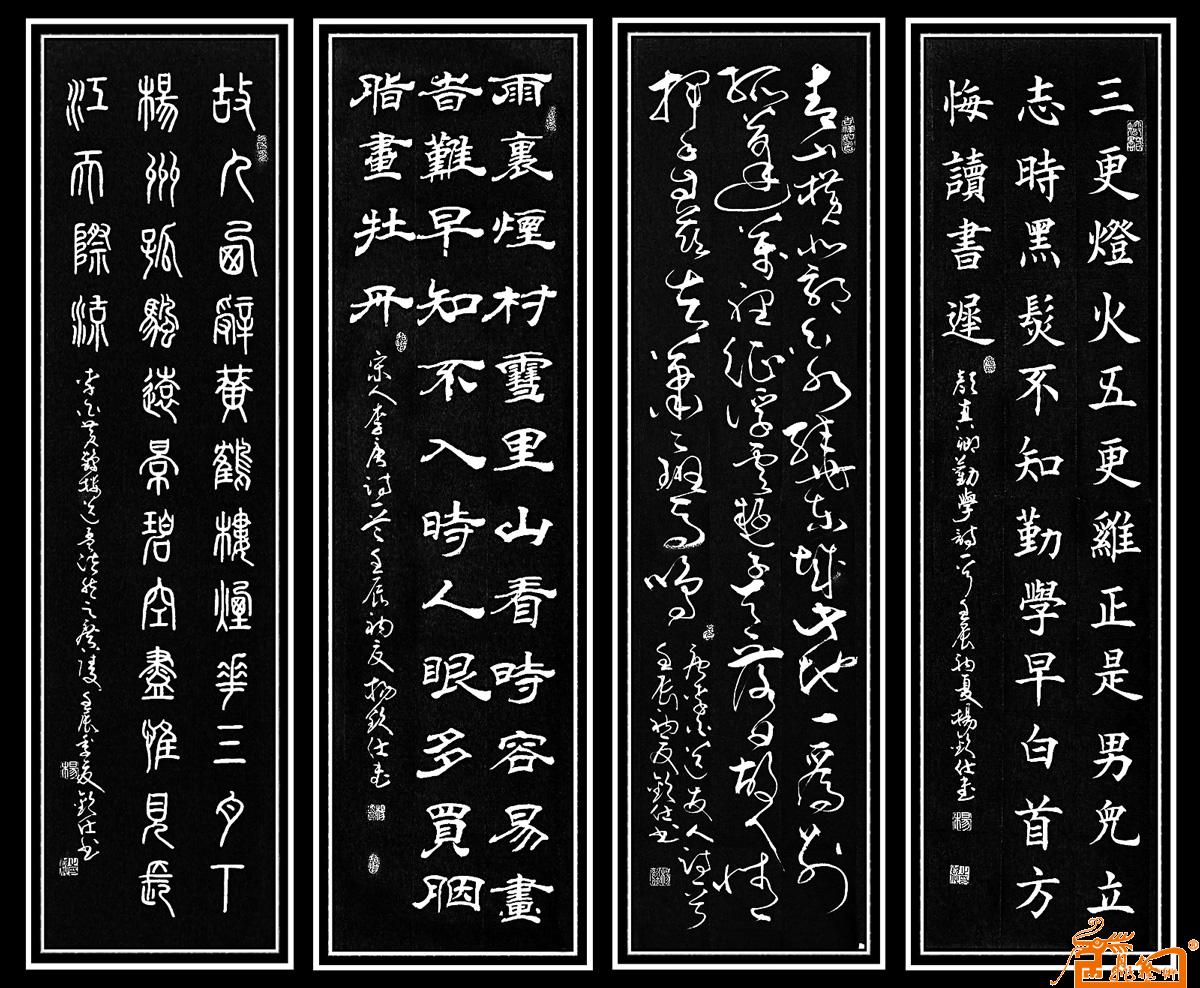 三更燈火五更雞正是男兒立
志時黑髮不知勤學早白首方
悔讀書遲
顏真卿勤學詩一首壬辰初夏楊欽仕書
青山橫北郭白水繞東城此地一為別
孤蓬萬裡征浮雲遊子意落日故人情
揮手自茲去蕭蕭班馬鳴
唐李白送友人詩一首
壬辰初夏欽仕書
雨裏煙村雪里山看時容易畫
旹難早知不入時人眼多買胭
脂畫牡丹
宋人李唐詩一首壬辰初夏楊欽仕書
故人西辭黃鶴樓煙華三月下
楊州孤颿遠景碧空盡惟見長
江天際流
李白黃鶴樓送孟浩然之廣陵壬辰季夏欽仕書